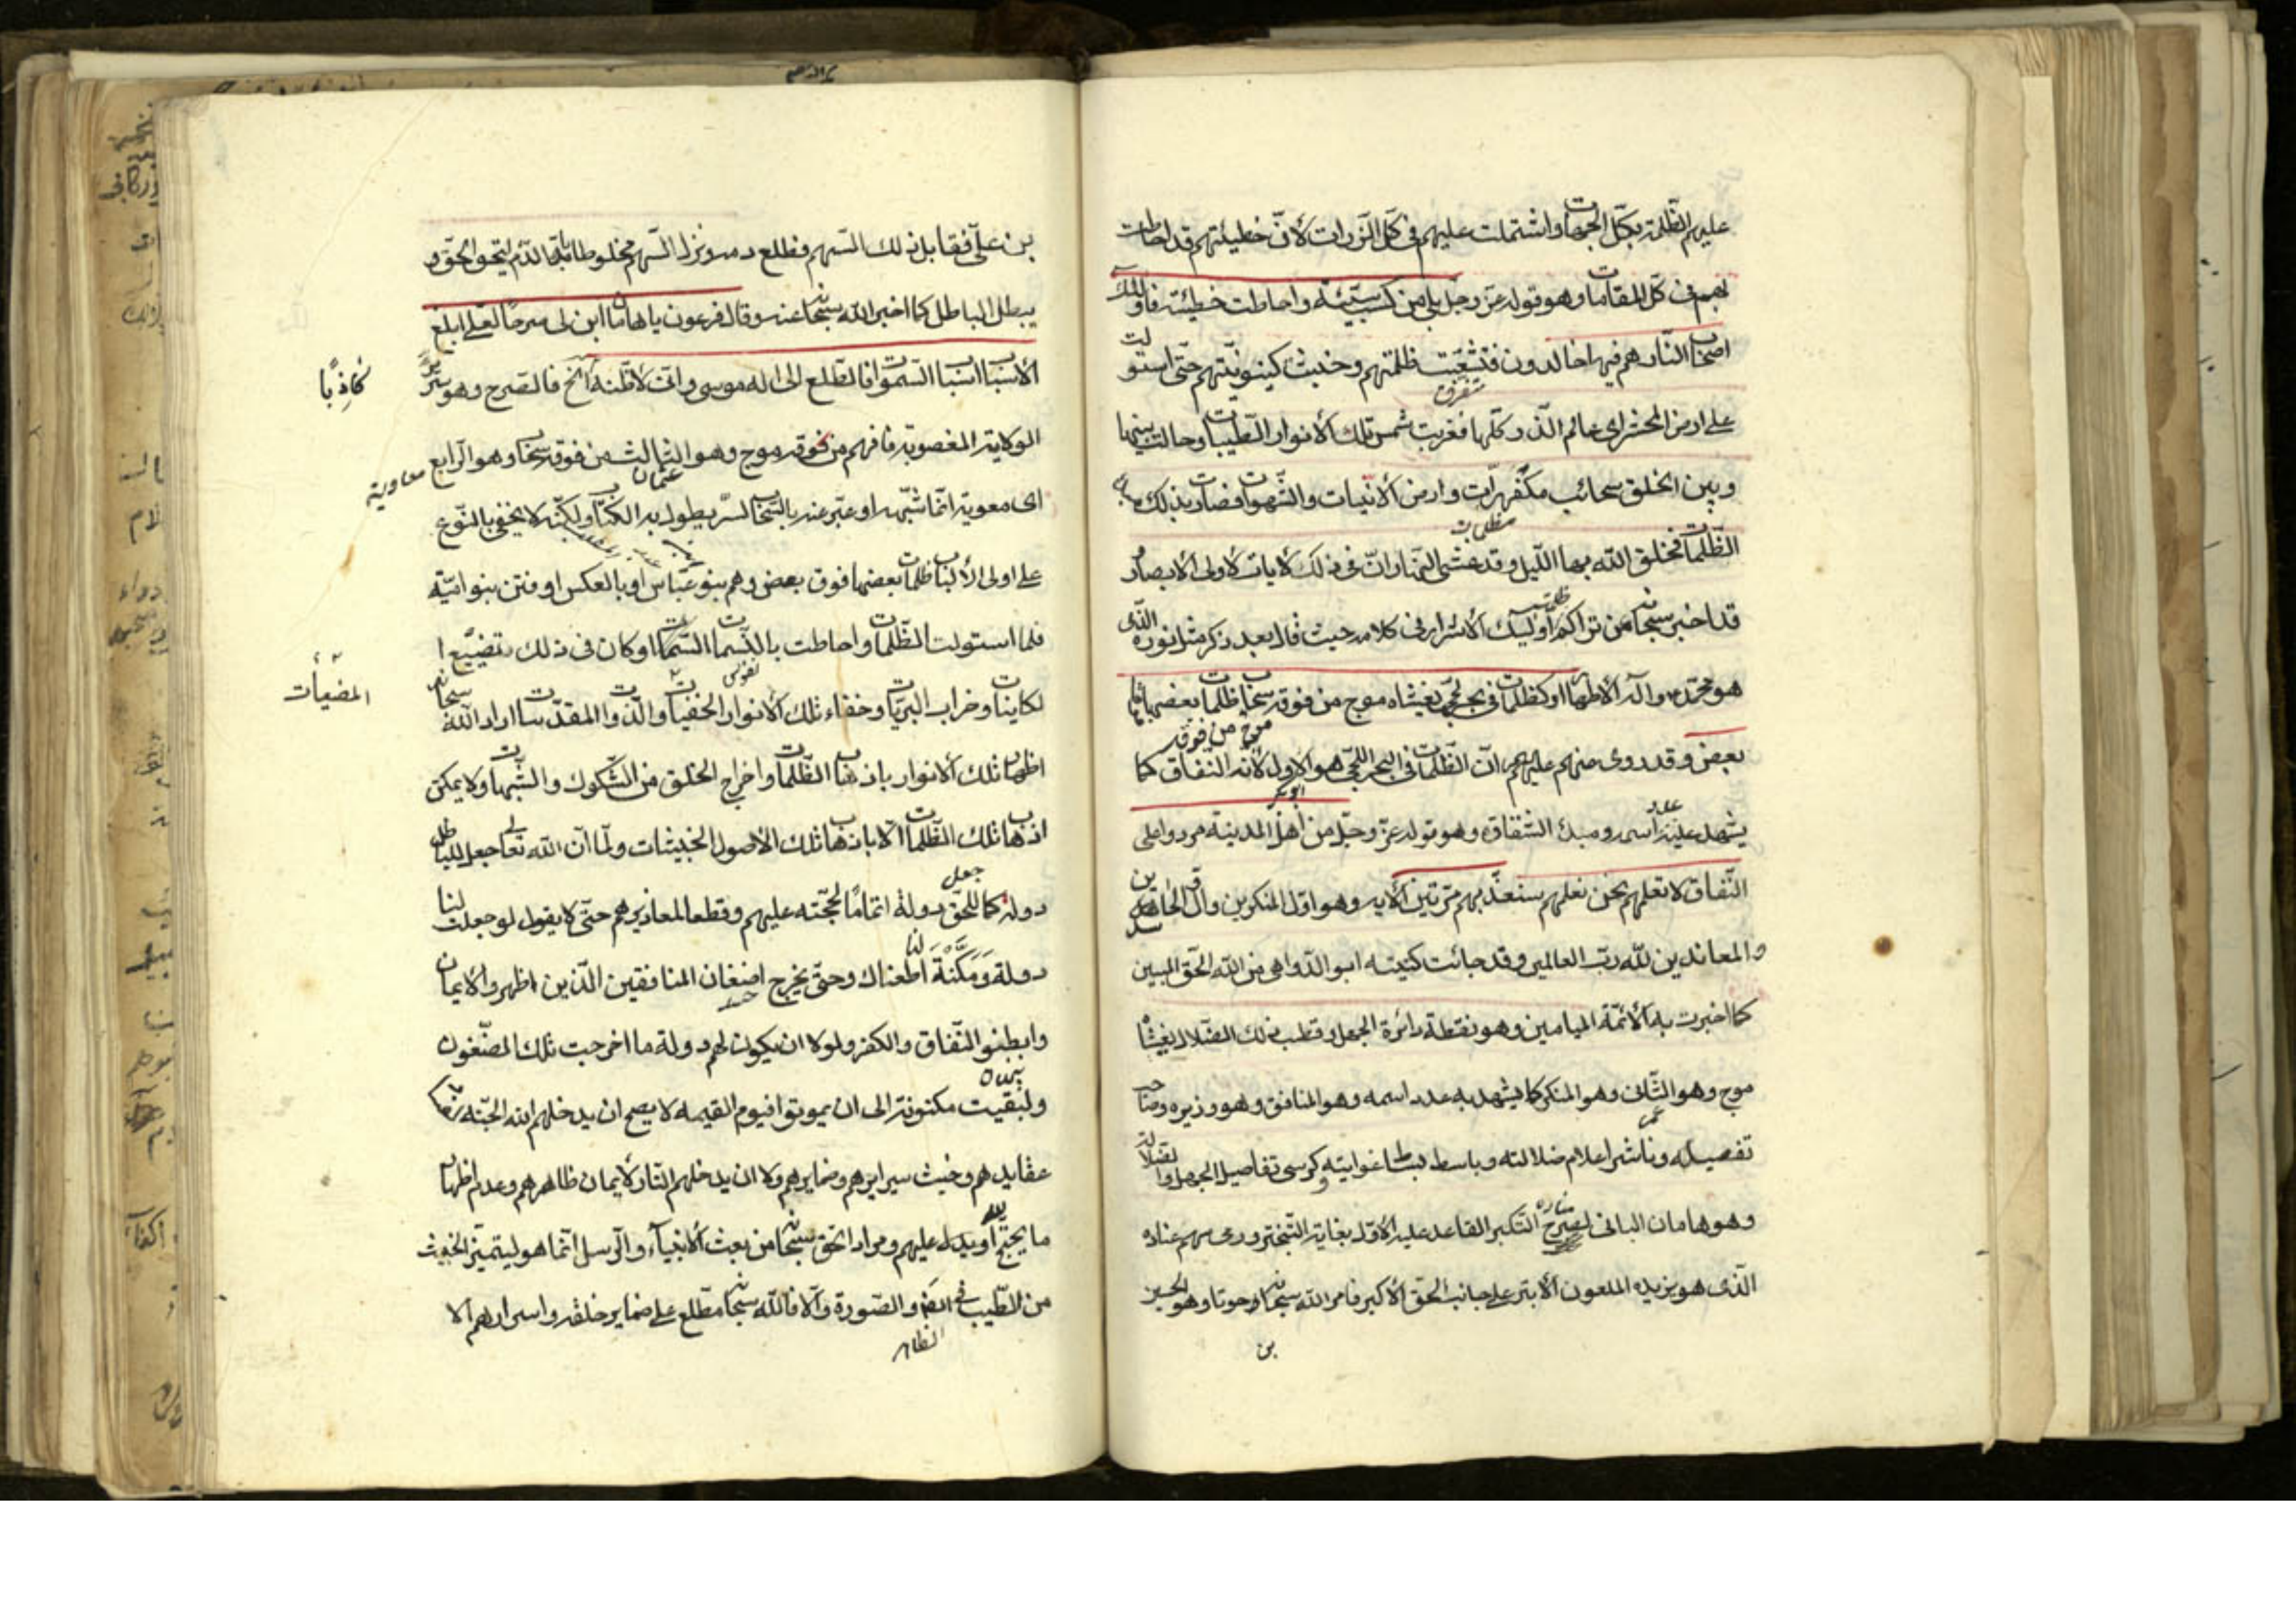 عليهم الظلمة بكل الجهات واشتملت عليهم فى كل الذرات لأن خطيئتهم قد احاطت
بهم فى كل المقامات وهو قوله عز وجل بلى من كسب سيئة واحاطت به خطيئته فاولئك
اصحاب النار هم فيها خالدون فتشعبت ظلمتهم وخبثت كينونيتهم حتى استولت
متفرق
على ارض المحشر اى عالم الذر كلها فغربت شمس تلك الأنوار الطيبات وحالت بينها
وبين الخلق سحائب مكفهرات وارض الأنيات والشهوات فصارت بذلك
مظلمات
الظلمات فخلق الله بها الليل وقد غشى النهار وان فى ذلك لآيات لاولى الابصار
قد اخبر سبحانه عن تراكم ظلمت اوليك الأشرار فى كلامه حيث قال بعد ذكر مثل نوره الذى
هو محمد وآله الأطهار او كظلمات فى بحر لجى يغشاه موج من فوقه سحاب ظلمات بعضها فوق
موج من فوقه
بعض وقد روى عنهم عليهم ان الظلمات فى البحر اللجى هو الأول لأنه النفاق كما
ابو بكر
يشهد عليه عدد اسمه ومبدء الشقاق وهو قوله عز وجل من اهل المدينة مردوا على
النفاق لا تعلمهم نحن نعلمهم سنعذبهم مرتين الآية وهو اول المنكرين وال
والمعاندين لله رب العالمين وقد جائت كنيته ابو الدواهى من الله الحق المبين
كما اخبرت به الأئمة الميامين وهو نقطة دائرة الجهل وقطب فلك الضلال يغشاه
موج وهو الثانى وهو المنكر كما يشهد به عدد اسمه وهو المنافق وهو وزيره وصاحب
عمر
تفصيله وناشر اعلام ضلالته وباسط بساط غوايته وكرسى تفاصيل الجهل والضلالة
وهو هامان البانى لصرح التكبر القاعد عليه الاول بغاية التبختر ورمى سهم عناده
مناره
الذى هو يزيد الملعون الأبتر على جانب الحق الأكبر فامر الله سبحانه حوتا وهو الحسين
بن
بن على فقابل ذلك السهم فطلع دمه ونزل السهم مخلوطا بالدم ليحق الحق و
يبطل الباطل كما اخبر الله سبحانه عنه وقال فرعون يا هامان ابن لى صرحا لعلى ابلغ
الأسباب اسباب السموات فاطلع الى اله موسى وانى لاظنه الخ فالصرح وهو سرير
كاذبًا
الولاية المغصوبة فافهم من فوقه موج وهو الثالث من فوقه سحاب وهو الرابع
عثمان
معاوية
اى معوية انما شبهه او عبر عنه بالسحاب لسر يطول به الكتاب ولكنه لا يخفى بالنوع
على اولى الألباب ظلمات بعضها فوق بعض وهم بنو عباس او بالعكس او فتن بنو امية
فلما استولت الظلمات واحاطت بالمدلهمات وكان فى ذلك تضييعا
المضيأت
لكاينات وخراب البريات وخفاء تلك الأنوار الخفيات والذوات المقدسات اراد الله سبحانه
نفوس
اظهار تلك الأنوار باذهاب الظلمات واخراج الخلق من الشكوك والشبهات ولا يمكن
اذهاب تلك الظلمات الا باذهاب تلك الأصول الخبيثات ولما ان الله تعالى جعل للباطل
دولة كما جعل للحق دولة اتماما لحجته عليهم وقطعا لمعاذيرهم حتى لا يقول لو جعلت لنا
دولة ومكنة لنا اطعناك وحتى يخرج اضغان المنافقين الذين اظهروا الايمان
وابطنوا النفاق والكفر ولولا ان يكون لهم دولة ما اخرجت تلك الضغون
ولبقيت مكنونة الى ان يموتوا فيوم القيمة لا يصح ان يدخلهم الله الجنة
عقايدهم وخبث سرايرهم وضمايرهم ولا ان يدخلهم النار لايمان ظاهرهم وعدم اظهار
ما يحتج او يدل عليهم ومراد الحق سبحانه من بعث الأنبياء والرسل انما هو ليتميز الخبيث
من الطيب فى والصورة والا فالله سبحانه مطلع على ضماير خلقه واسرارهم الا
الظاهر